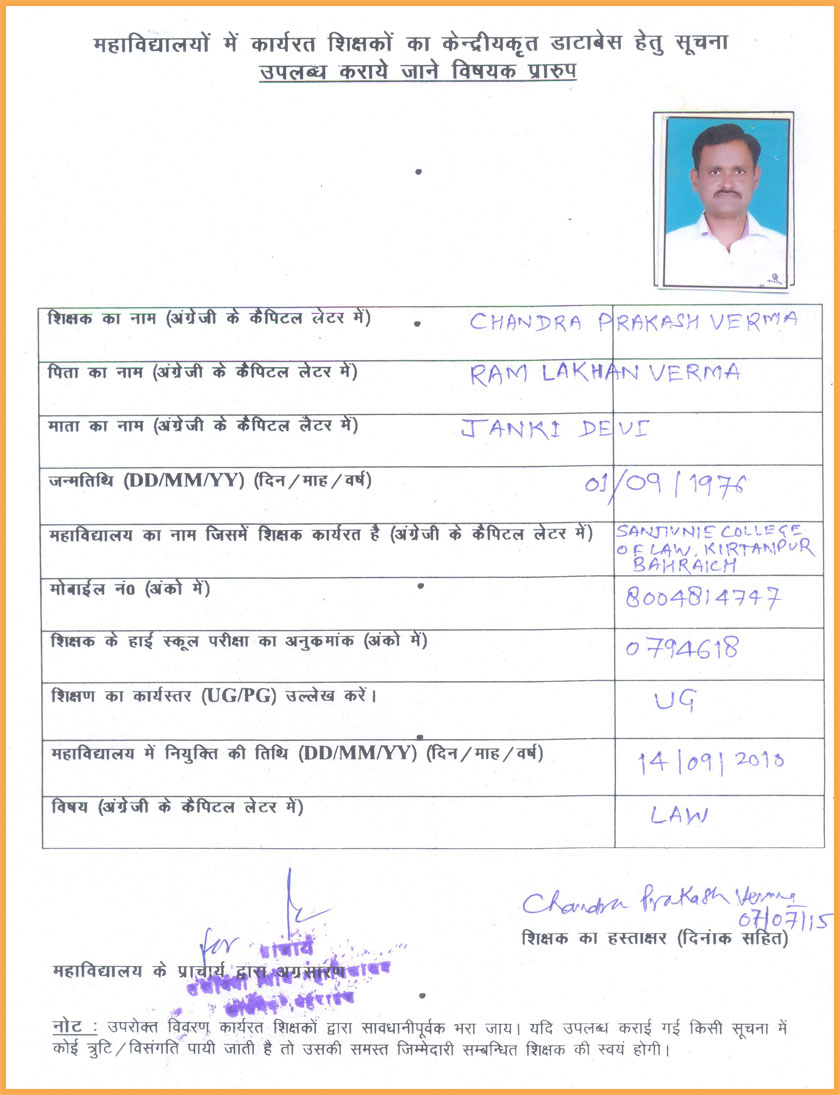 महाविद्यालयों में कार्यरत शिक्षकों का केन्द्रीयकृत डाटाबेस हेतु सूचना
उपलब्ध कराये जाने विषयक प्रारुप
शिक्षक का नाम (अंग्रेजी के कैपिटल लेटर में) CHANDRA PRAKASH VERMA
पिता का नाम (अंग्रेजी के कैपिटल लेटर में) RAM LAKHAN VERMA
माता का नाम (अंग्रेजी के कैपिटल लैटर में) JANKI DEVI
जन्मतिथि (DD/MM/YY) (दिन/माह/वर्ष) 01/09/1976
महाविद्यालय का नाम जिसमें शिक्षक कार्यरत है (अंग्रेजी के कैपिटल लेटर में) SANJIVNIE COLLEGE
OF LAW, KIRTANPUR
BAHRAICH
मोबाईल नं0 (अंको में) 8004814747
शिक्षक के हाई स्कूल परीक्षा का अनुकमांक (अंको में) 0794618
शिक्षण का कार्यस्तर (UG/PG) उल्लेख करें। UG
महाविद्यालय में नियुक्ति की तिथि (DD/MM/YY) (दिन/माह/वर्ष) 14/09/2010
विषय (अंग्रेजी के कैपिटल लेटर में) LAW
Chandra Prakash Verma
07/07/15
शिक्षक का हस्ताक्षर (दिनांक सहित)
for
प्राचार्य
महाविद्यालय के प्राचार्य द्वारा अग्रसारण
नोट : उपरोक्त विवरण कार्यरत शिक्षकों द्वारा सावधानीपूर्वक भरा जाय। यदि उपलब्ध कराई गई किसी सूचना में
कोई त्रुटि/विसंगति पायी जाती है तो उसकी समस्त जिम्मेदारी सम्बन्धित शिक्षक की स्वयं होगी।